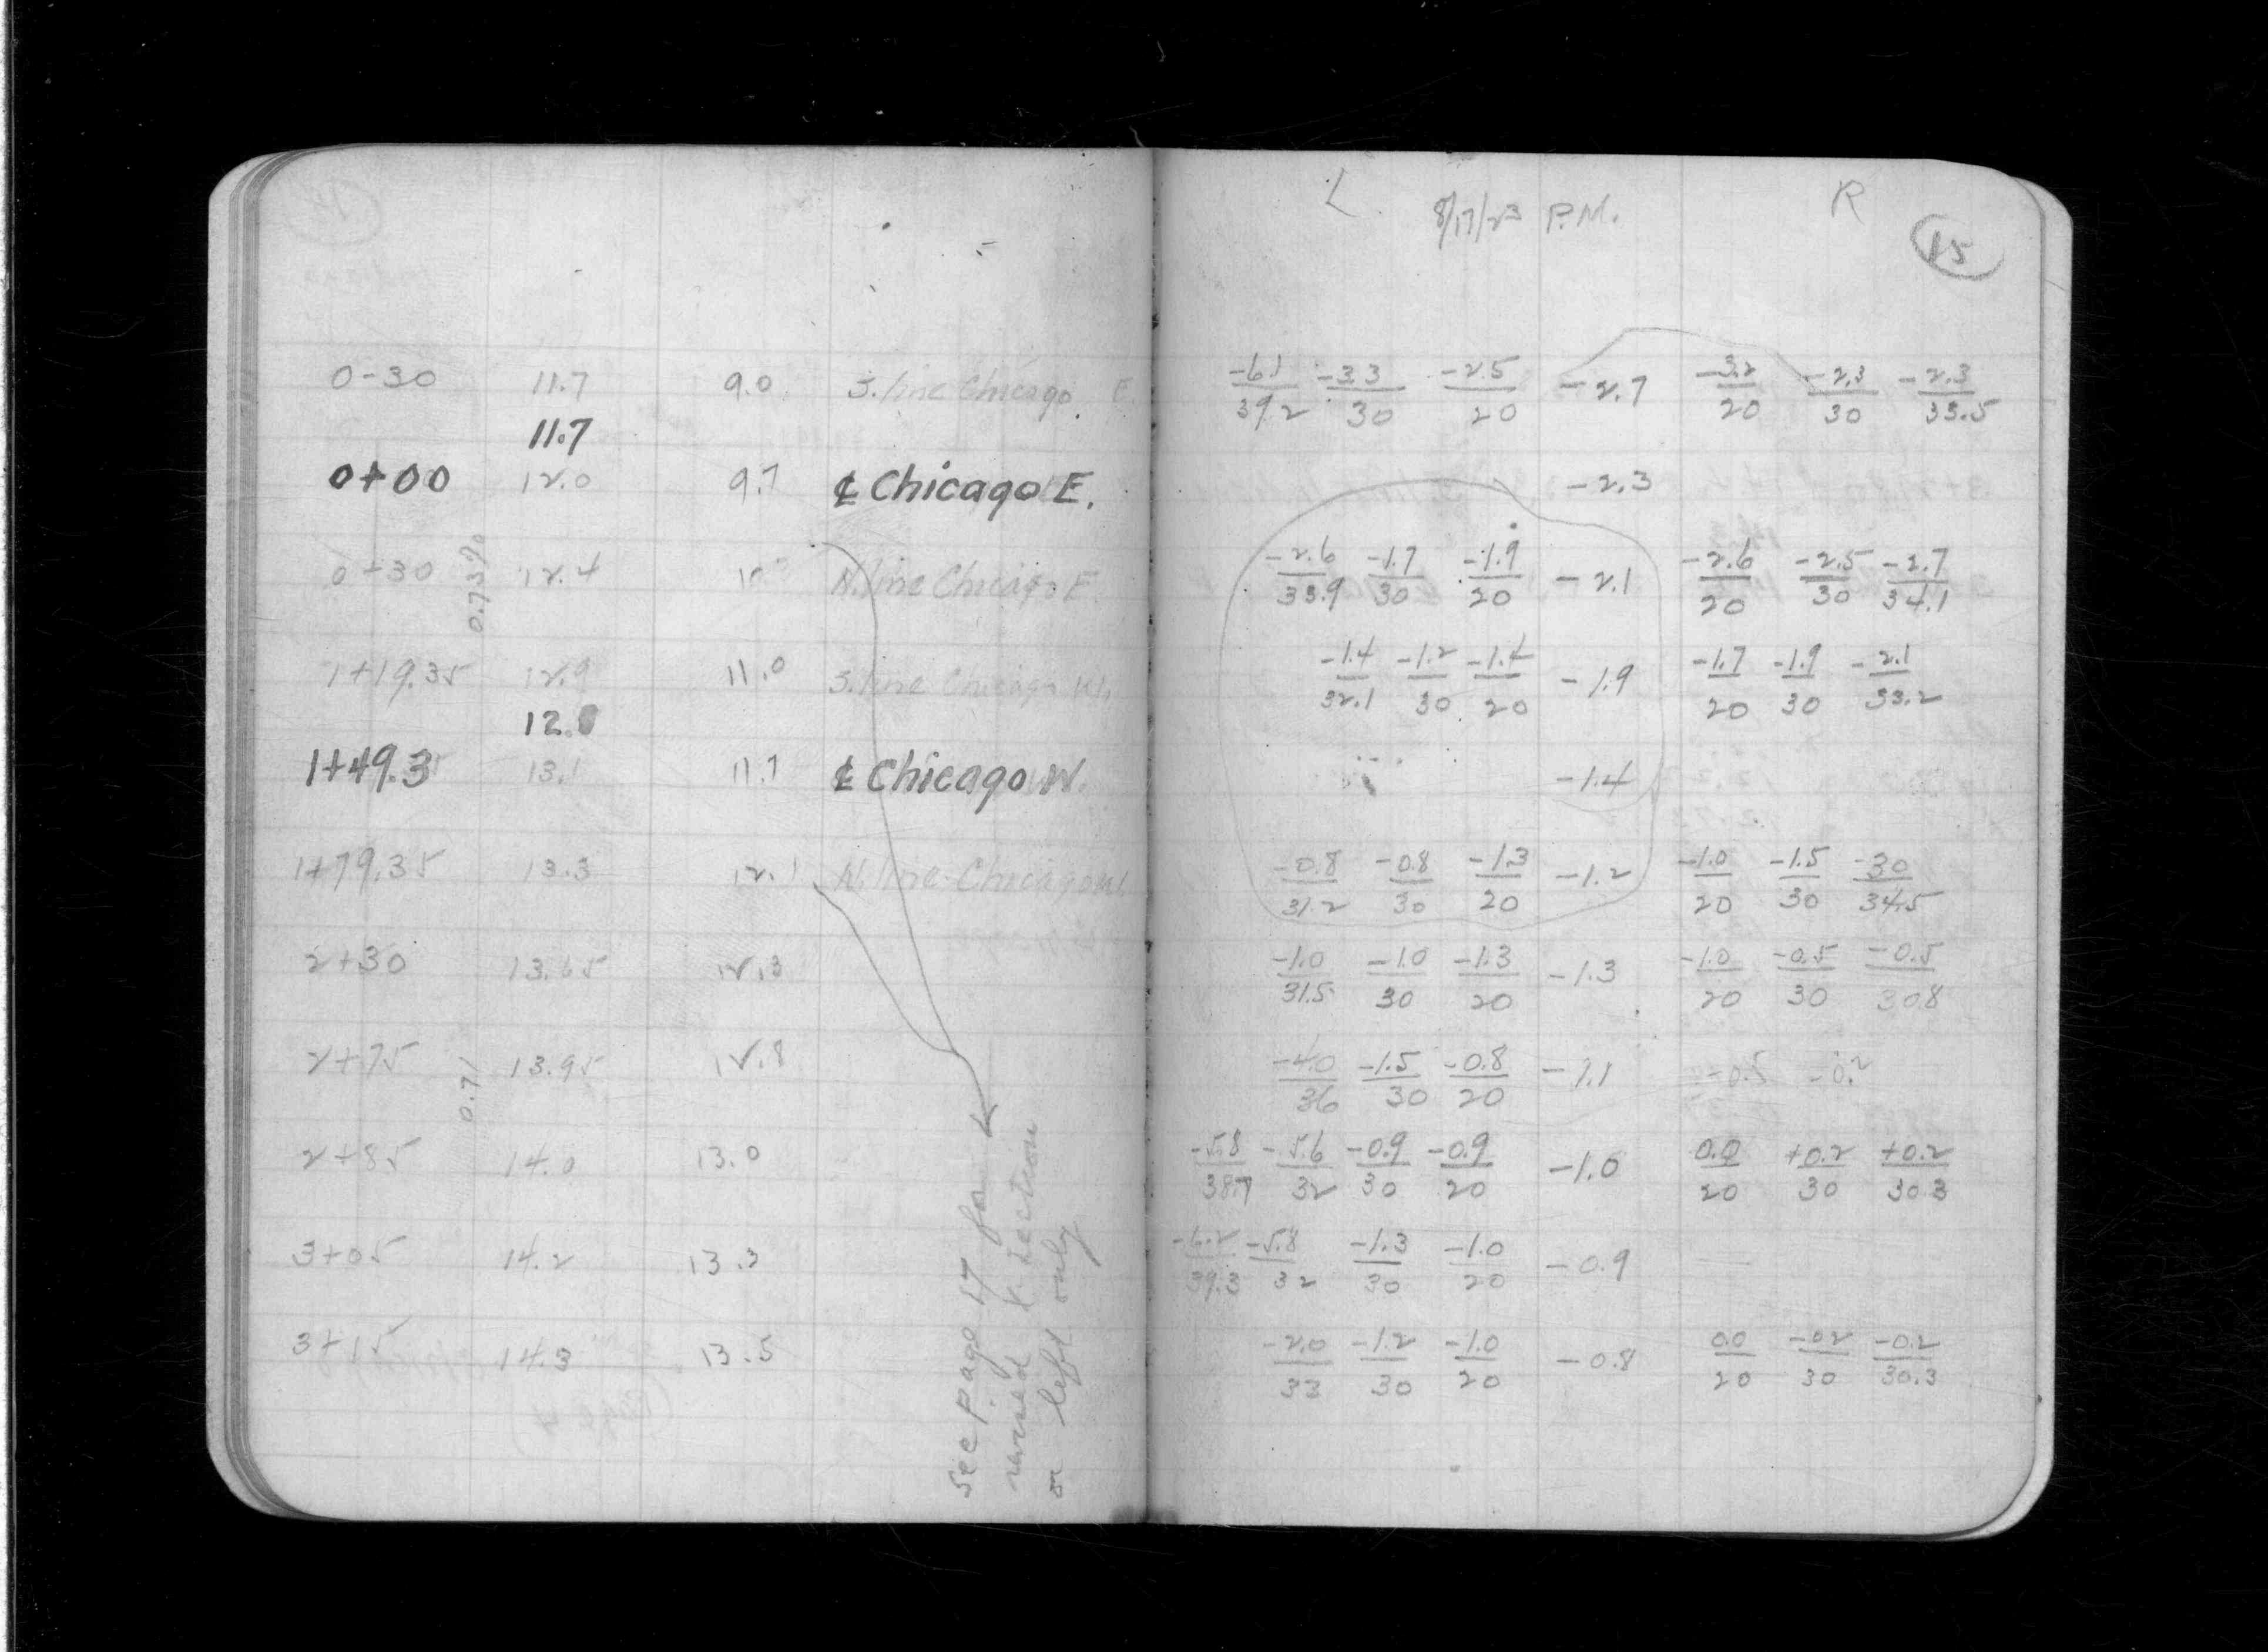 L 8/17/23 P.M. R
15
0-30 11.7 9.0 S. line Chicago E. -6.1/39.2 -3.3/30 -2.5/20 -2.7 -3.2/20 -2.3/30 -2.3/33.5
11.7
0+00 12.0 9.7 ℄ Chicago E. -2.3
0+30 12.4 N. line Chicago E. -2.6/33.9 -1.7/30 -1.9/20 -2.1 -2.6/20 -2.5/30 -2.7/34.1
0.73%
1+19.35 12.9 11.0 S. line Chicago W. -1.4/32.1 -1.2/30 -1.4/20 -1.9 -1.7/20 -1.9/30 -2.1/33.2
12.8
1+49.35 13.1 11.7 ℄ Chicago W. -1.4
1+79.35 13.3 12.1 N. line Chicago W. -0.8/31.2 -0.8/30 -1.3/20 -1.2 -1.0/20 -1.5/30 -30/34.5
2+30 13.65 12.3 -1.0/31.5 -1.0/30 -1.3/20 -1.3 -1.0/20 -0.5/30 -0.5/30.8
2+75 13.95 12.8 -4.0/36 -1.5/30 -0.8/20 -1.1 -0.5 -0.2
0.71
2+85 14.0 13.0 -5.8/38.7 -5.6/32 -0.9/30 -0.9/20 -1.0 0.0/20 +0.2/30 +0.2/30.3
3+05 14.2 13.3 -6.2/39.3 -5.8/32 -1.3/30 -1.0/20 -0.9
3+15 14.3 13.5 -2.0/33 -1.2/30 -1.0/20 -0.8 0.0/20 -0.2/30 -0.2/30.3
See page 17 for
revised X section
on left only